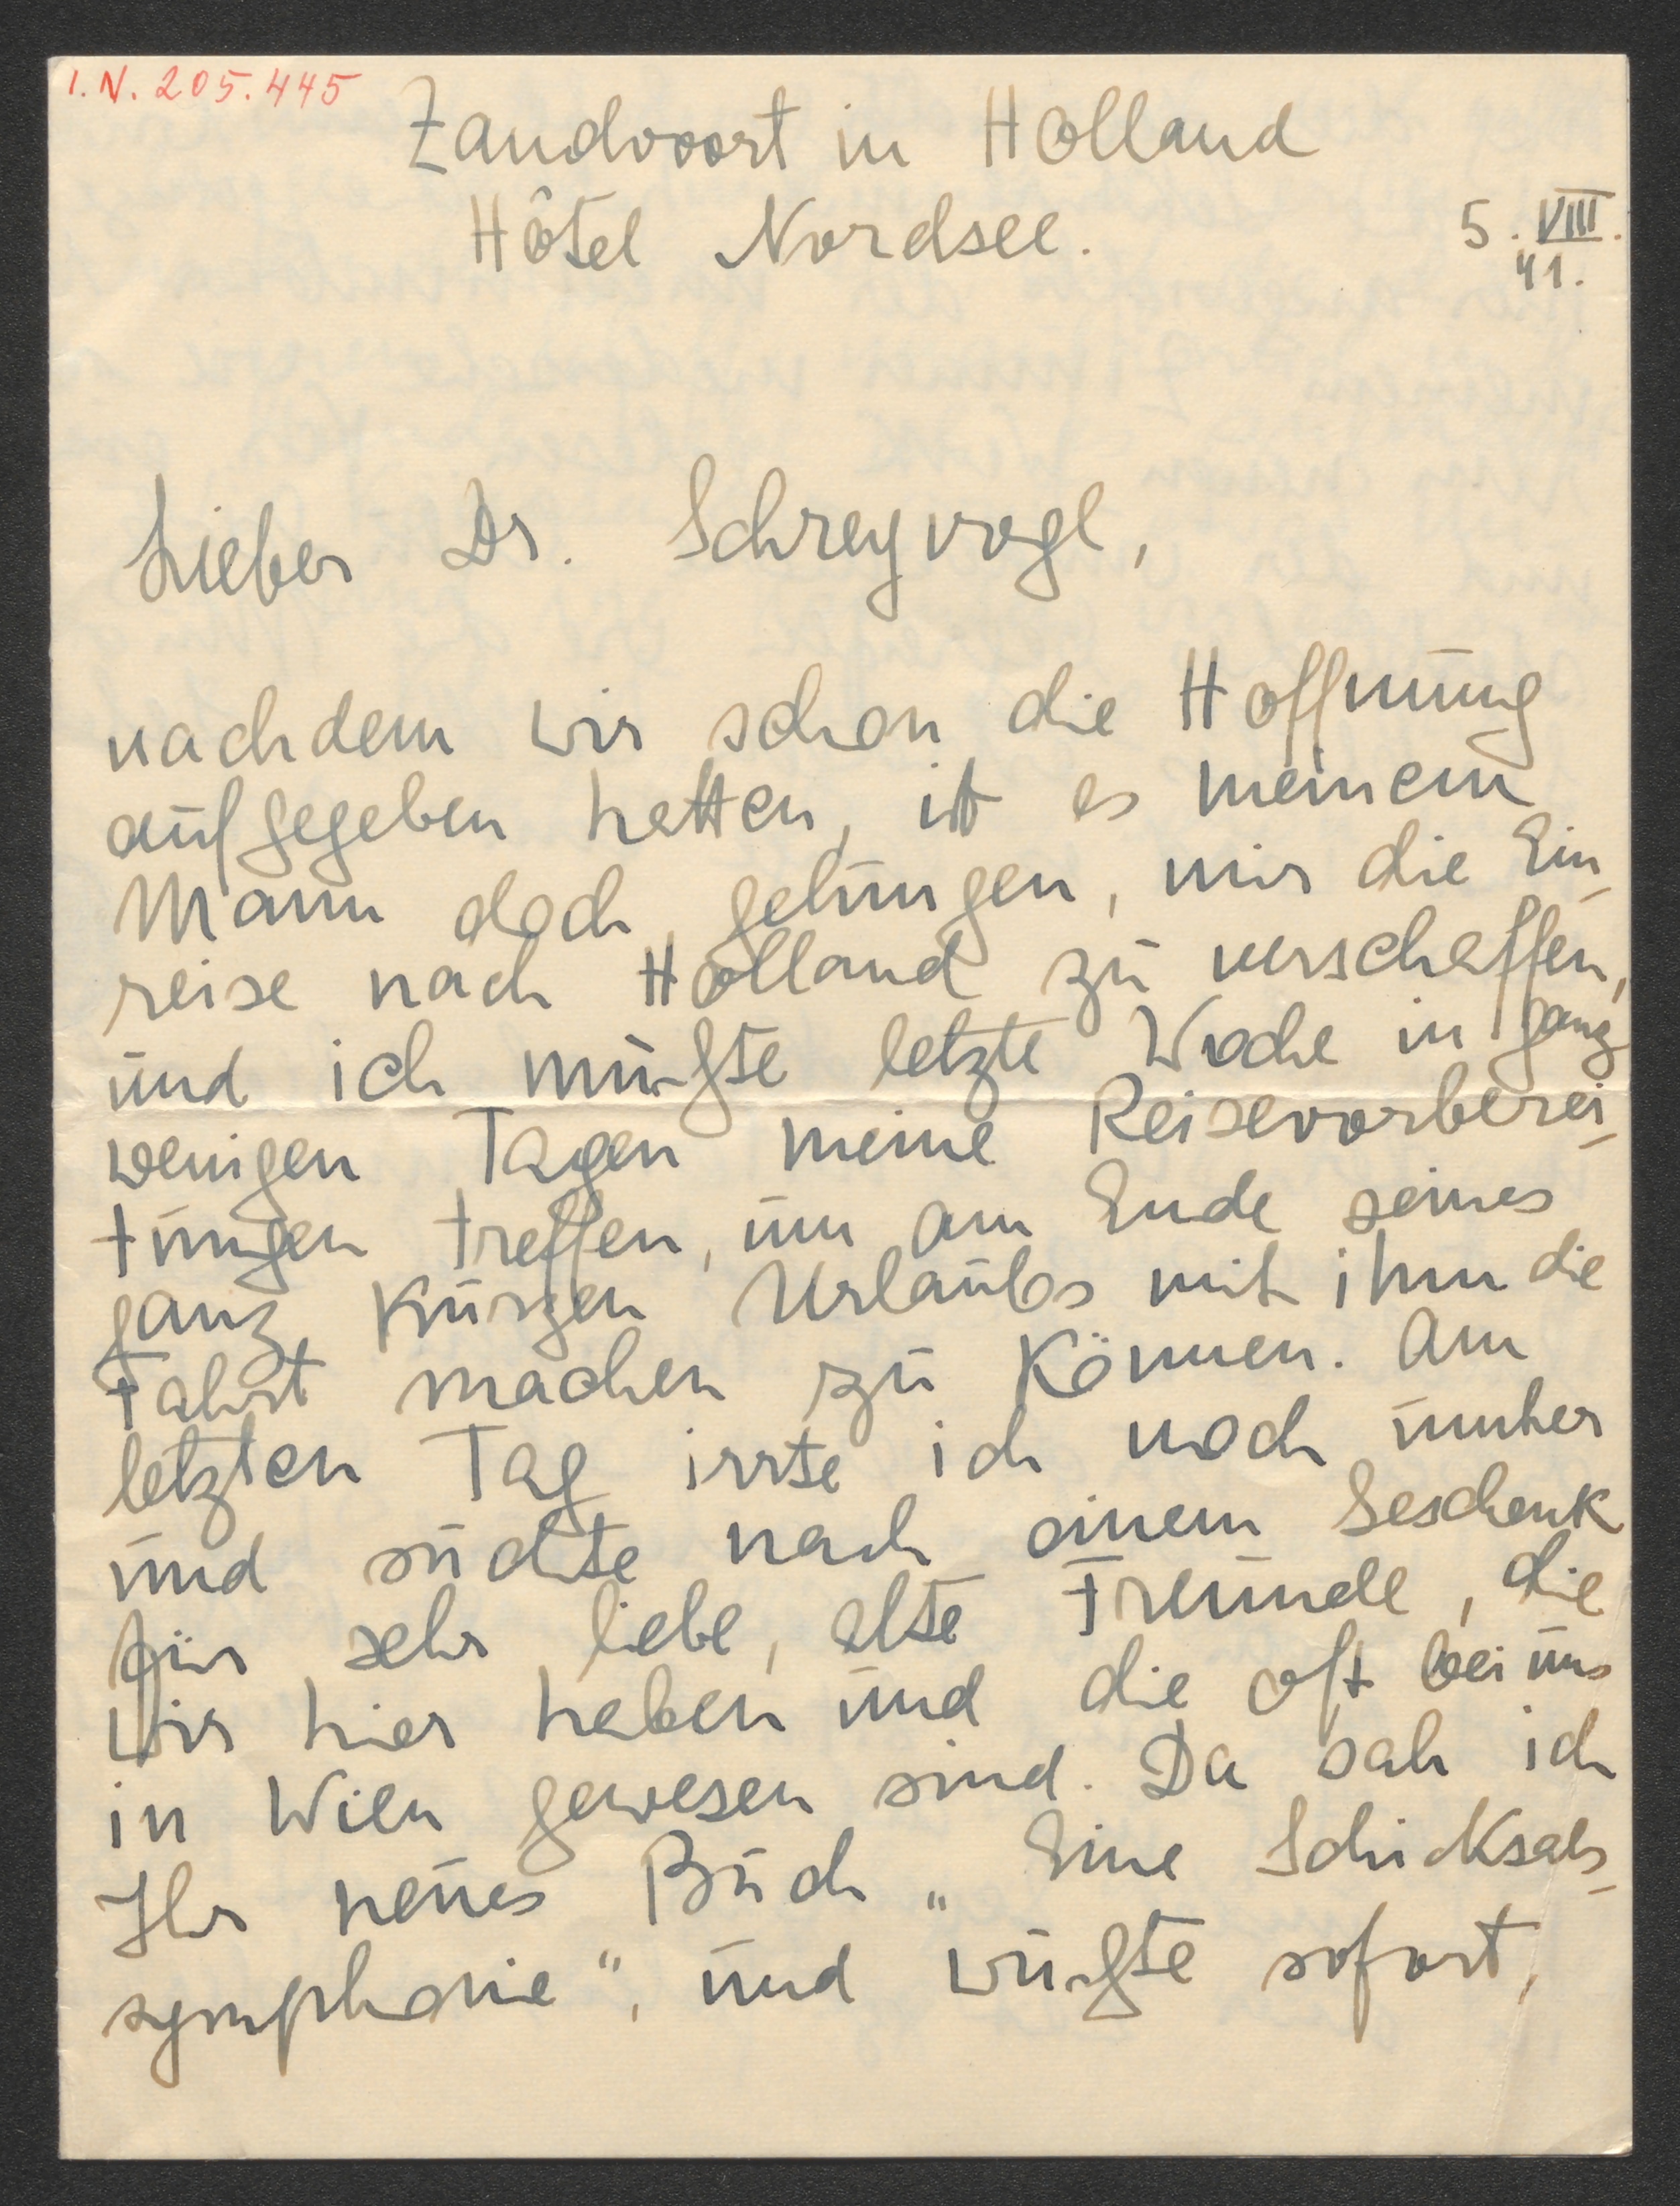 I.N. 205.445
Zandvoort in Holland
Hôtel Nordsee.
5. VIII.
41.
Lieber Dr. Schreyvogl,
nachdem wir schon die Hoffnung
aufgegeben hatten, ist es meinem
Mann doch gelungen, mir die Ein-
reise nach Holland zu verschaffen,
und ich mußte letzte Woche in ganz
wenigen Tagen meine Reisevorberei-
tungen treffen, um am Ende seines
ganz kurzen Urlaubs mit ihm die
Fahrt machen zu können. Am
letzten Tag irrte ich noch umher
und suchte nach einem Geschenk
für sehr liebe, alte Freunde, die
wir hier haben und die oft bei uns
in Wien gewesen sind. Da sah ich
Ihr neues Buch „Eine Schicksals-
symphonie“, und wußte sofort,